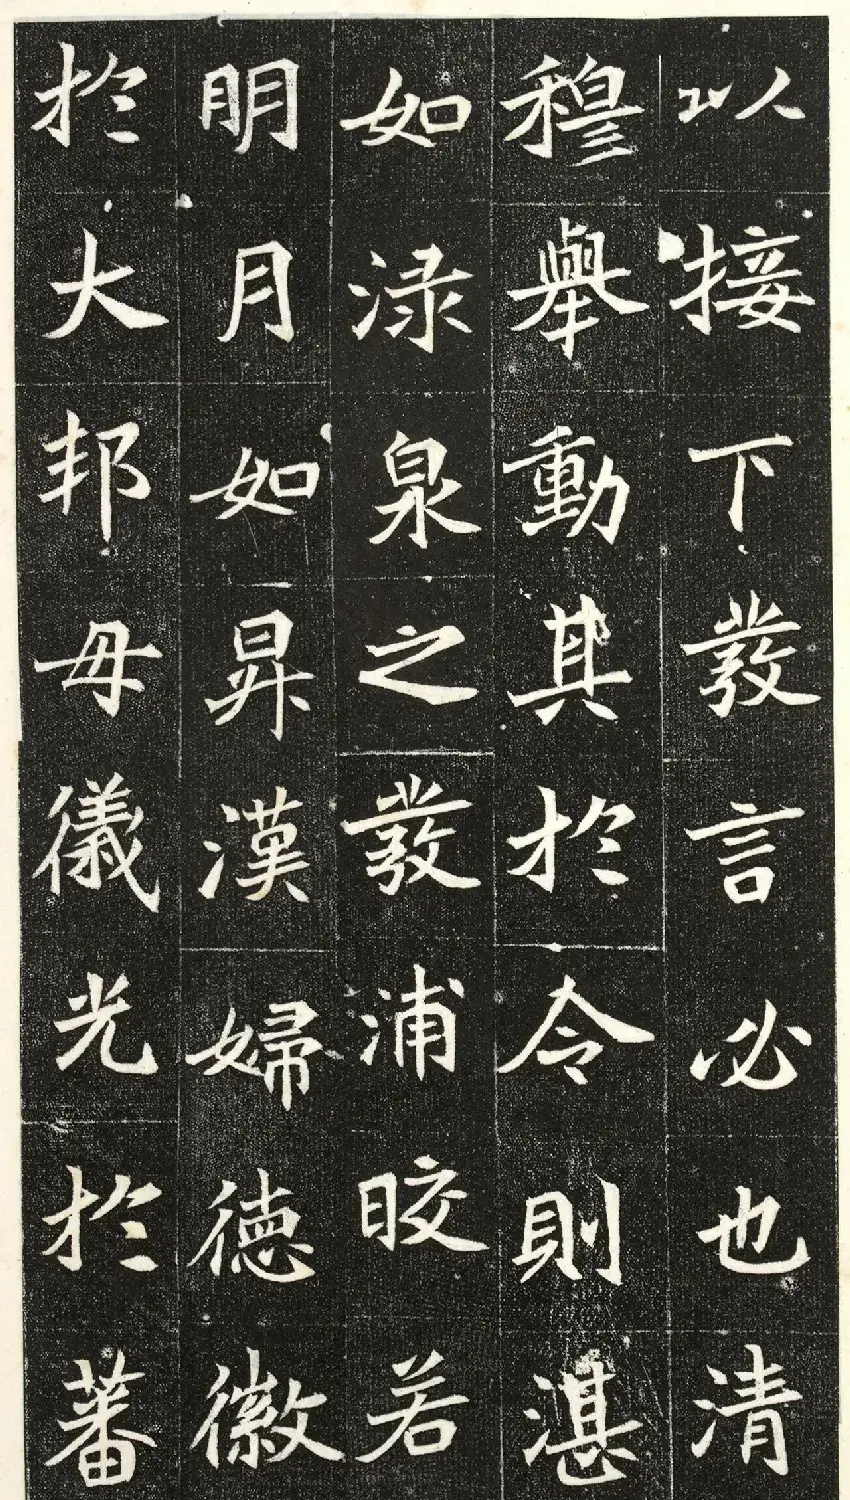 以接下發言必也清
穆舉動其於令則湛
如渌泉之發浦皎若
明月如昇漢婦德徽
於大邦母儀光於蕃